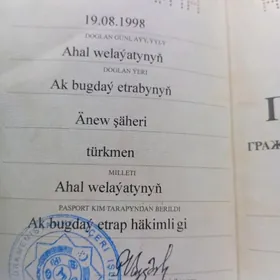 19.08.1998
DOGLAN GÜNI, AÝY, ÝYLY
Ahal welaýatynyň
DOGLAN ÝERI
Ak bugdaý etrabynyň
Änew şäheri
türkmen
MILLETI
Ahal welaýatynyň
PASPORT KIM TARAPYNDAN BERILDI
Ak bugdaý etrap häkimli gi
П
ГРАЖ